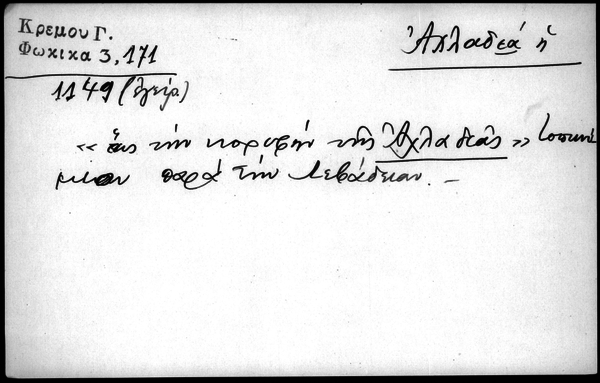 Κρεμου Γ.
Φωκικα 3, 171
Ἀχλαδεά ἡ
1149 (ἔγγρ.)
« ἕως τὴν κορυφὴν τῆς Ἀχλαδεᾶς » τοπωνύ
μιον παρὰ τὴν Λεβάδειαν. –